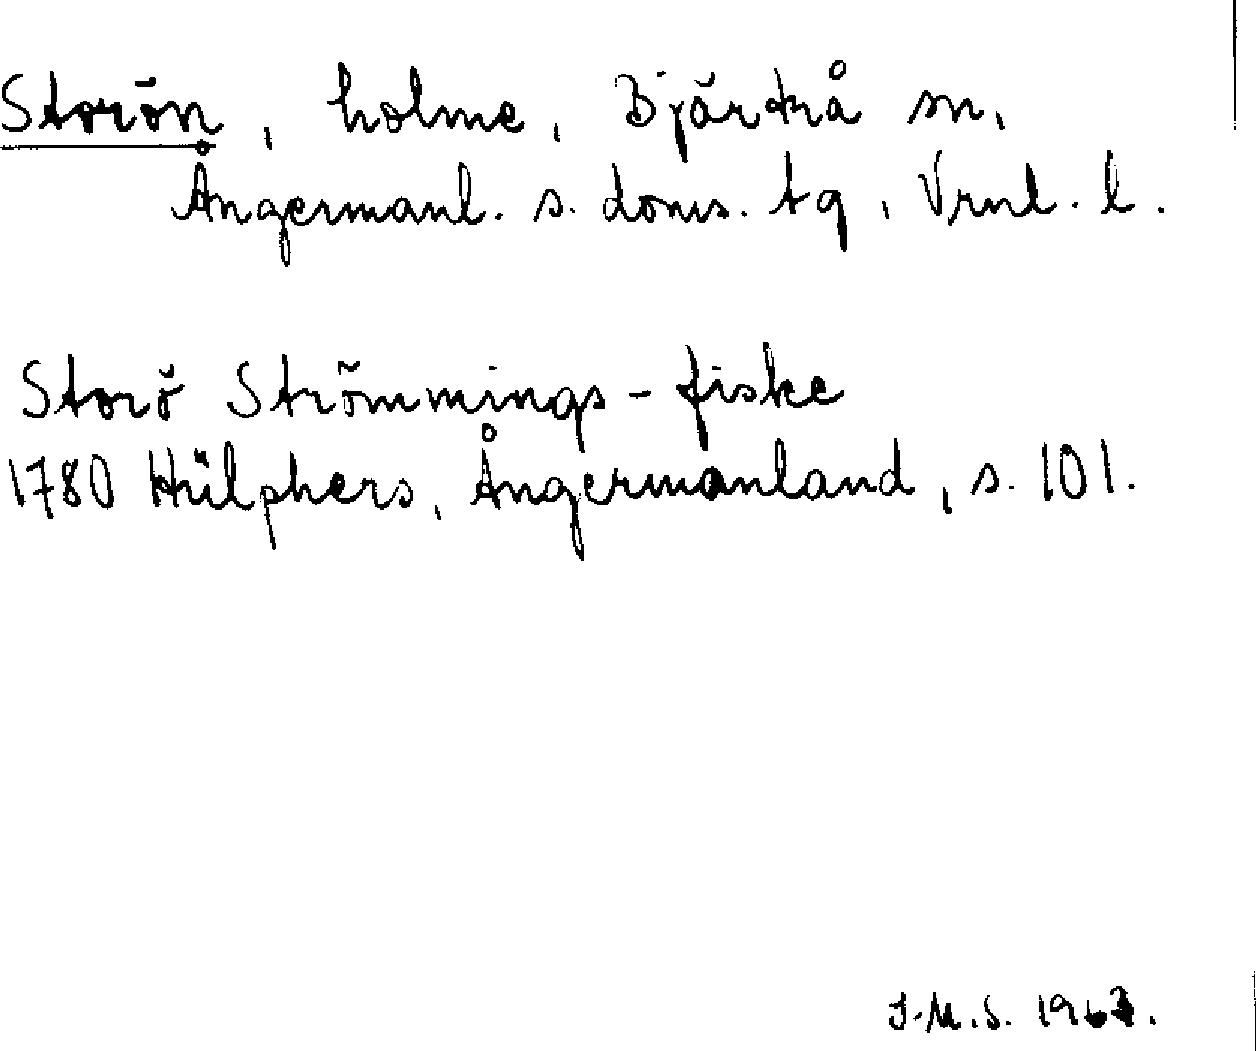 Storön, holme, Bjärtrå sn,
Ångermanl. s. doms. tg, Vrnl. l.
Storö Strömmings-fiske
1780 Hülphers, Ångermanland, s. 101.
J.M.S.